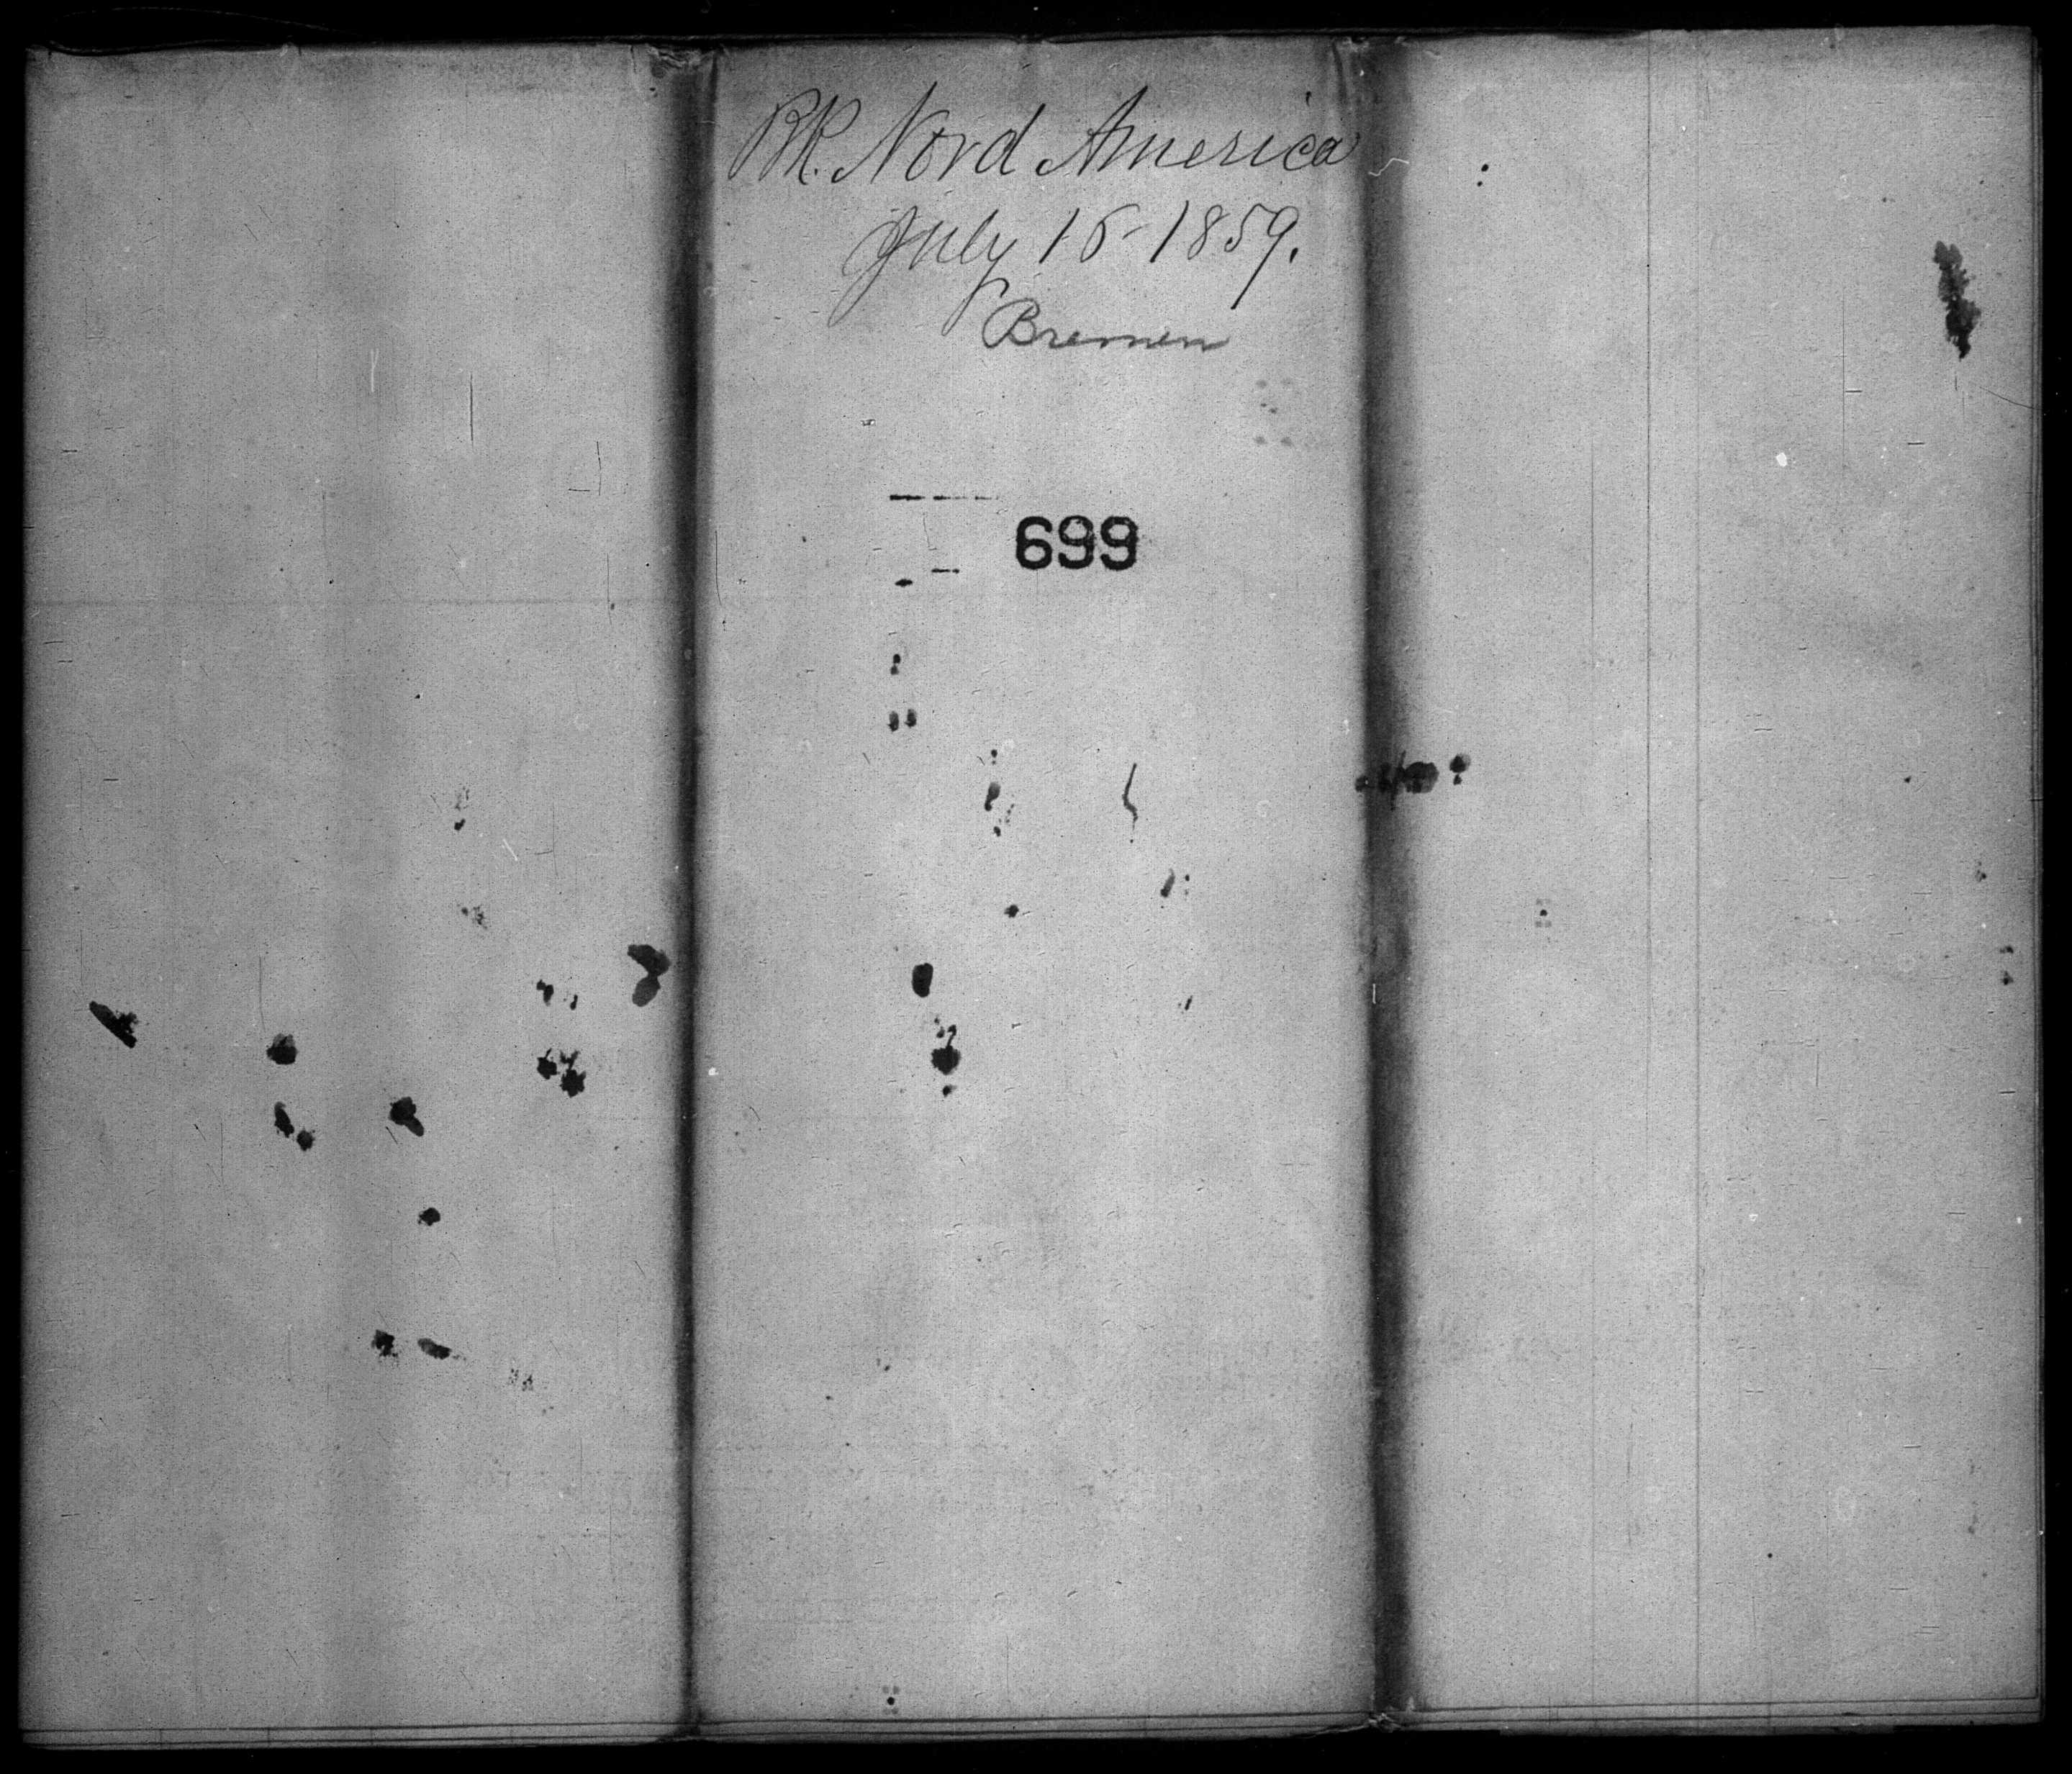 BK. Nord America
July 16-1859.
Bremen
699